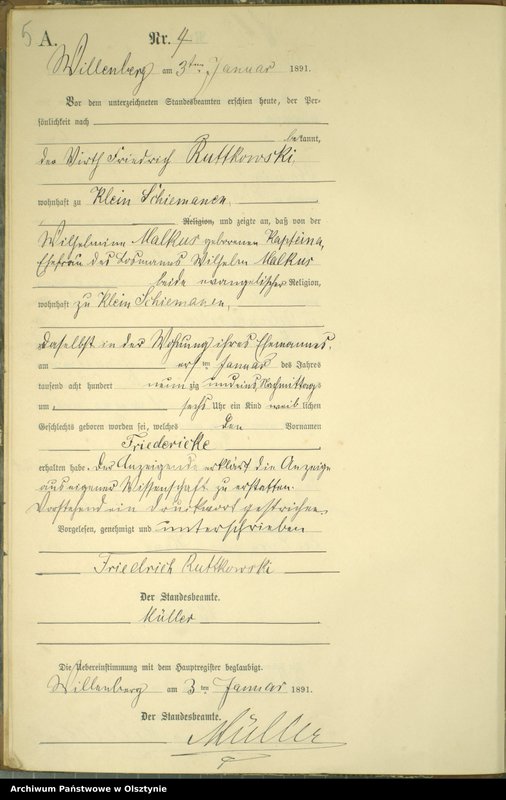 5
A.
Nr. 4
Willenberg am 3ten Januar 1891.
Vor dem unterzeichneten Standesbeamten erschien heute, der Per-
sönlichkeit nach
bekannt,
der Wirth Friedrich Ruttkowski,
wohnhaft zu Klein Schiemanen,
Religion, und zeigte an, daß von der
Wilhelmine Malkus geborenen Kapteina,
Ehefrau des Losmanns Wilhelm Malkus
beide evangelischer Religion,
wohnhaft zu Klein Schiemanen,
daselbst in der Wohnung ihres Ehemannes,
am ersten Januar des Jahres
tausend acht hundert neunzig und eins Nachmittags
um sechs Uhr ein Kind weiblichen
Geschlechts geboren worden sei, welches den Vornamen
Friedericke
erhalten habe. Der Anzeigende erklärt die Anzeige
aus eigener Wissenschaft zu erstatten.
Vorstehend ein Druckwort gestrichen.
Vorgelesen, genehmigt und unterschrieben
Friedrich Ruttkowski
Der Standesbeamte.
Müller
Die Uebereinstimmung mit dem Hauptregister beglaubigt.
Willenberg am 3ten Januar 1891.
Der Standesbeamte.
Müller
Archiwum Państwowe w Olsztynie